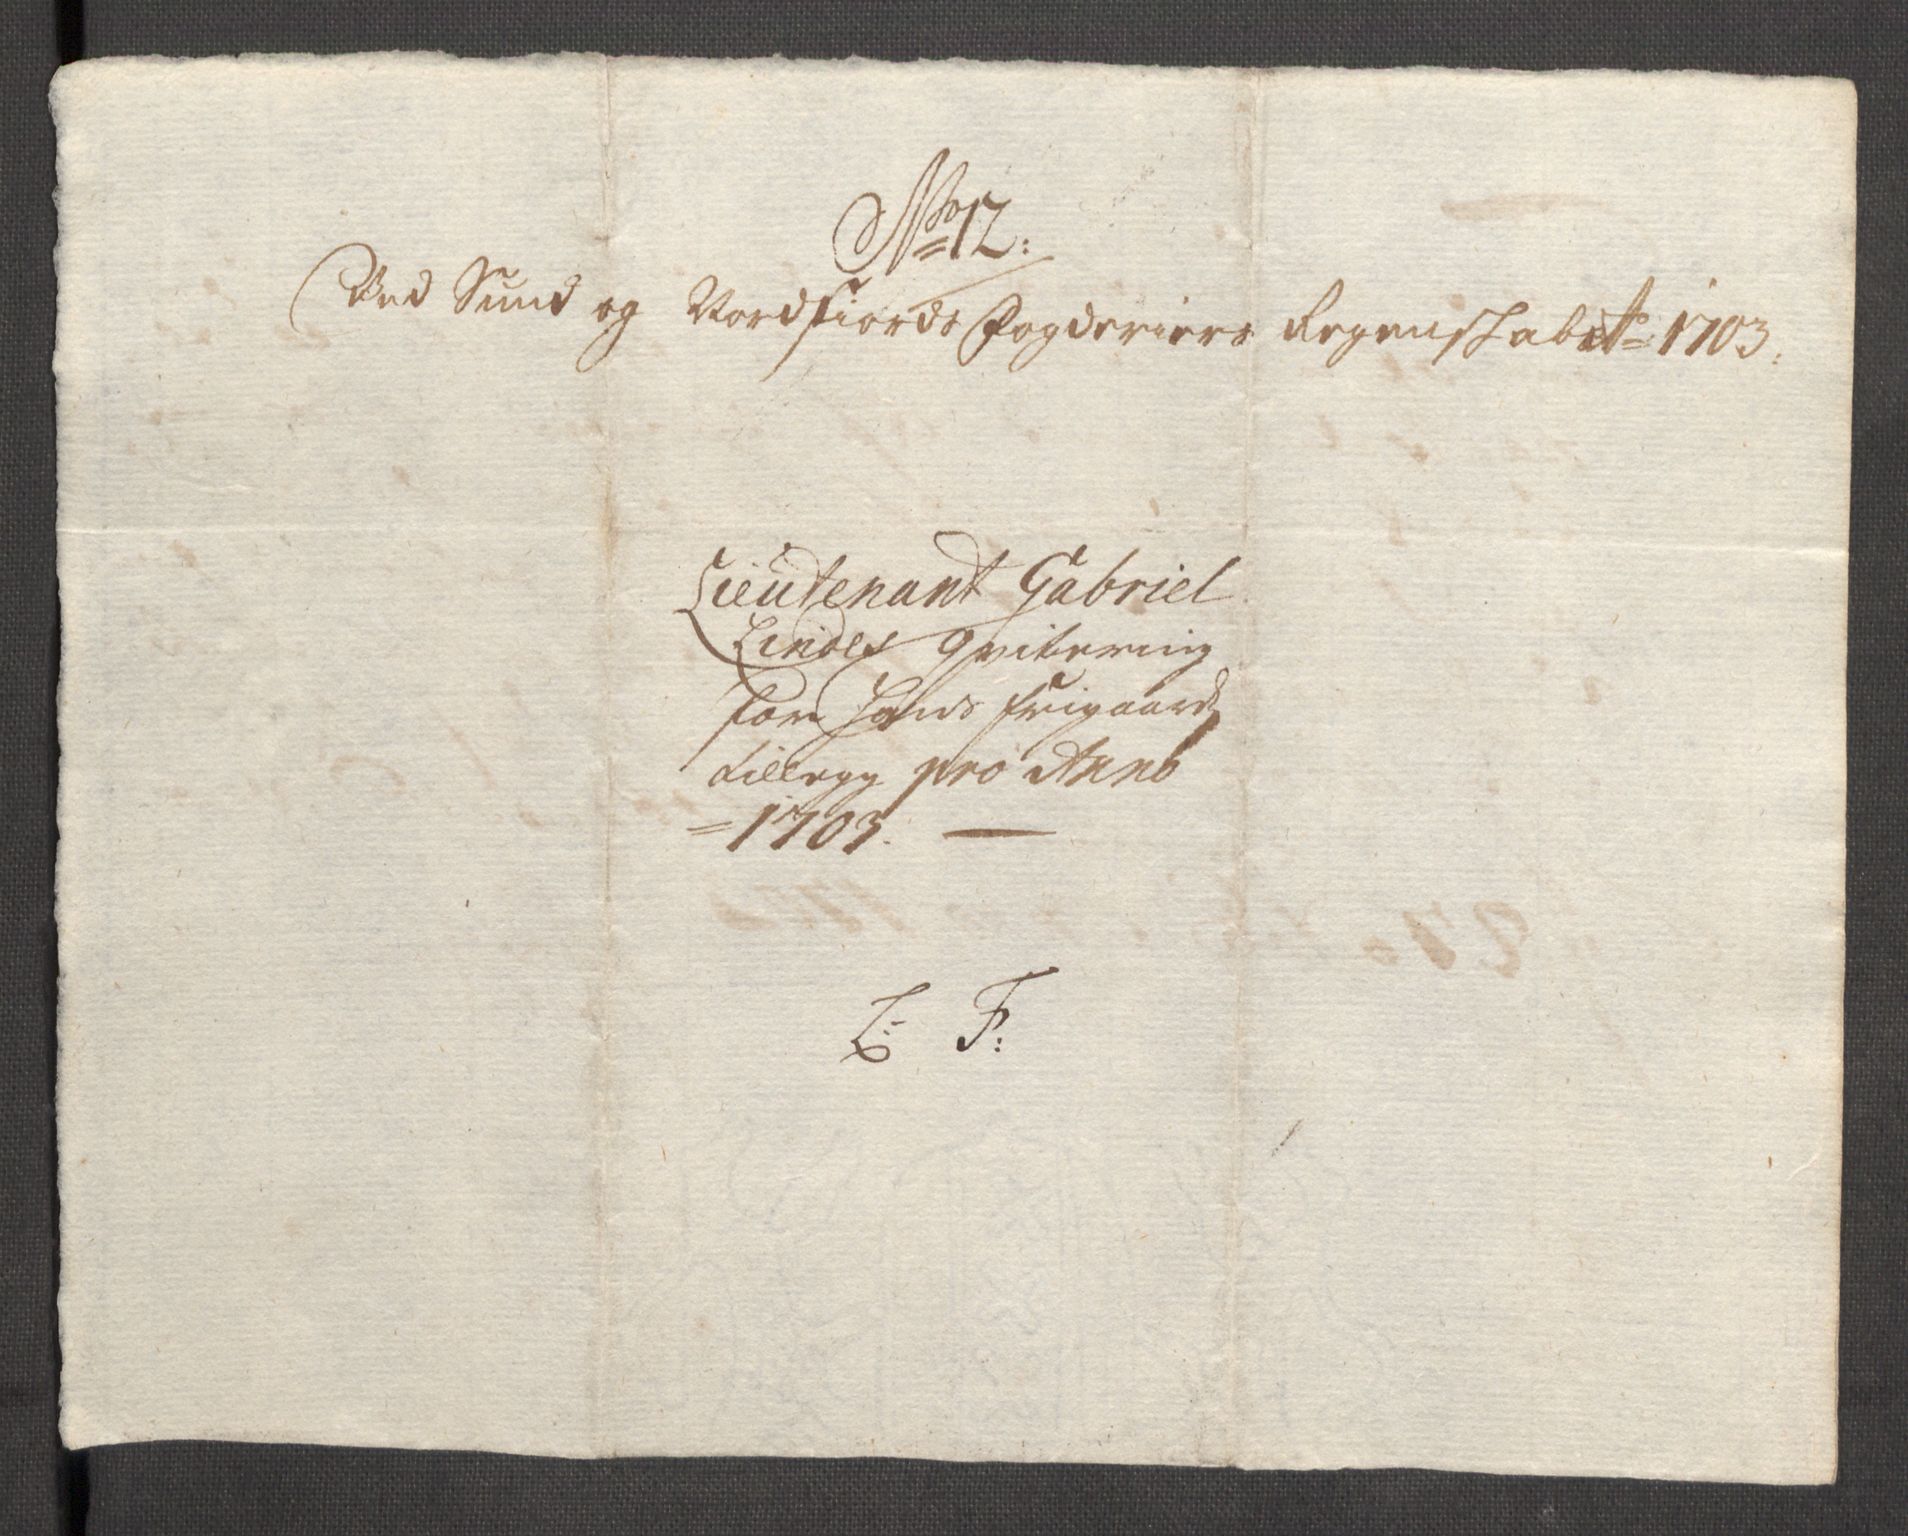 No 12:
Ved Sund og Nordfiords Fogderiers Regenskab Ao 1703.
Lieutenant Gabriel
Lindes Qvitering
for Hans frigaards
tillegg pro Anno
= 1703. —
L: F: